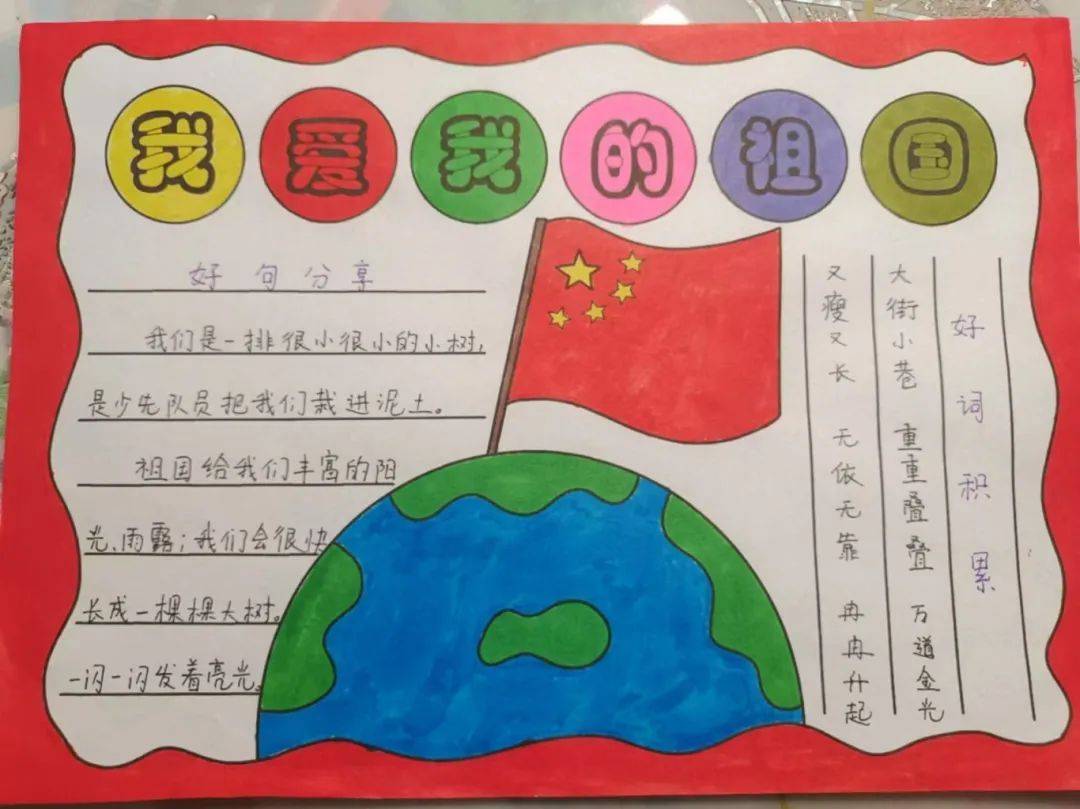 我爱我的祖国
好句分享
我们是一排很小很小的小树,
是少先队员把我们栽进泥土。
祖国给我们丰富的阳
光、雨露;我们会很快
长成一棵棵大树。
一闪一闪发着亮光。
好词积累
大街小巷 重重叠叠 万道金光
又瘦又长 无依无靠 冉冉升起